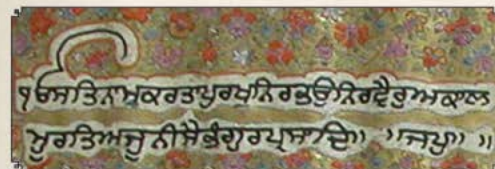 ੴਸਤਿਨਾਮੁਕਰਤਾਪੁਰਖੁਨਿਰਭਉਨਿਰਵੈਰੁਅਕਾਲ
ਮੂਰਤਿਅਜੂਨੀਸੈਭੰਗੁਰਪ੍ਰਸਾਦਿ॥ ॥ਜਪੁ॥ ॥